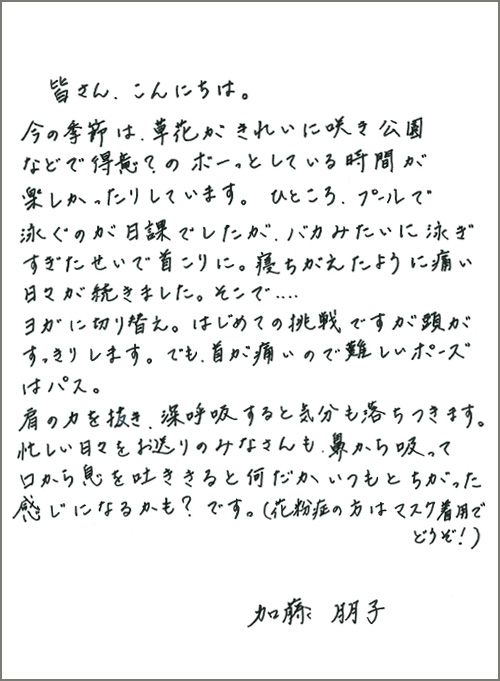 皆さん、こんにちは。
今の季節は、草花がきれいに咲き公園
などで得意?のボーっとしている時間が
楽しかったりしています。ひところ、プールで
泳ぐのが日課でしたが、バカみたいに泳ぎ
すぎたせいで首こりに。寝ちがえたように痛い
日々が続きました。そこで‥‥
ヨガに切り替え。はじめての挑戦ですが頭が
すっきりします。でも、首が痛いので難しいポーズ
はパス。
肩の力を抜き、深呼吸すると気分も落ちつきます。
忙しい日々をお送りのみなさんも、鼻から吸って
口から息を吐ききると何だかいつもとちがった
感じになるかも?です。(花粉症の方はマスク着用で
どうぞ!)
加藤 朋子